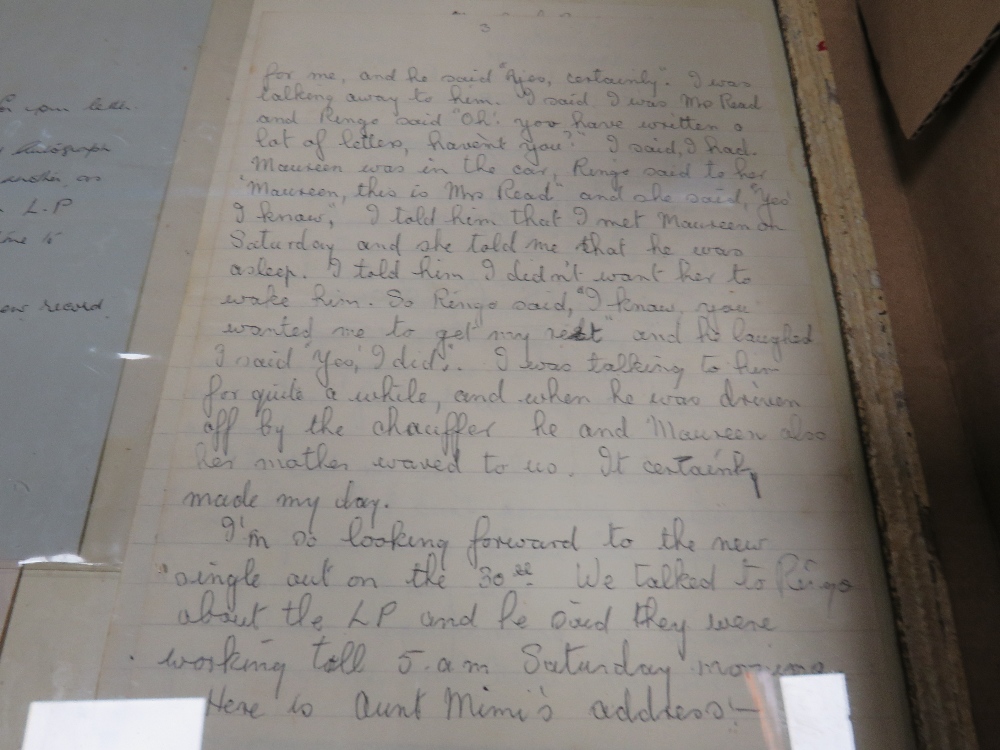 3
for me, and he said "Yes, certainly". I was
talking away to him. I said I was Mrs Read
and Ringo said "Oh! you have written a
lot of letters, haven't you?" I said, I had.
Maureen was in the car, Ringo said to her
"Maureen, this is Mrs Read" and she said, "Yes
I know", I told him that I met Maureen on
Saturday and she told me that he was
asleep. I told him I didn't want her to
wake him. So Ringo said, "I know, you
wanted me to get my rest" and he laughed
I said "Yes, I did." I was talking to him
for quite a while, and when he was driven
off by the chauffer he and Maureen also
her mother waved to us. It certainly
made my day.
I'm so looking forward to the new
single out on the 30th We talked to Ringo
about the LP and he said they were
working till 5 a.m Saturday morning
Here is Aunt Mimi's address:—
your letter.
autograph
another, as
L.P
time to
record.